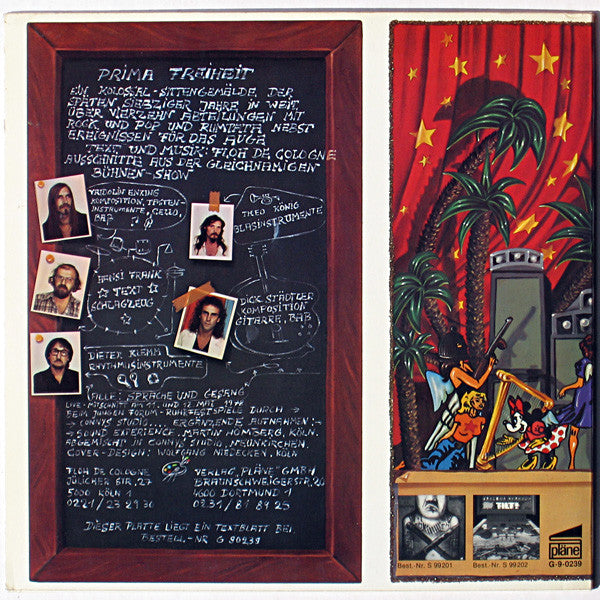 PRIMA FREIHEIT
EIN KOLOSSAL-SITTENGEMÄLDE DER
SPÄTEN SIEBZIGER JAHRE IN WEIT
ÜBER VIERZEHN ABTEILUNGEN MIT
ROCK UND POP UND RUMTATA NEBST
EREIGNISSEN FÜR DAS AUGE
TEXT UND MUSIK: FLOH DE COLOGNE
AUSSCHNITTE AUS DER GLEICHNAMIGEN
BÜHNEN-SHOW
VRIDOLIN ENXING
KOMPOSITION, TASTEN-
INSTRUMENTE, CELLO,
BAß
THEO KÖNIG
BLASINSTRUMENTE
HANSI FRANK
TEXT
SCHLAGZEUG
DICK STÄDTLER
KOMPOSITION
GITARRE, BAß
DIETER KLEMM
RHYTHMUSINSTRUMENTE
ALLE: SPRACHE UND GESANG
LIVE-MITSCHNITT AM 11. UND 12. MAI 1978
BEIM JUNGEN FORUM - RUHRFESTSPIELE DURCH
CONNYS STUDIO. ERGÄNZENDE AUFNAHMEN:
SOUND EXPERIENCE, MARTIN HÖMBERG, KÖLN.
ABGEMISCHT IN CONNYS STUDIO, NEUNKIRCHEN.
COVER-DESIGN: WOLFGANG NIEDECKEN, KÖLN
FLOH DE COLOGNE
JÜLICHER STR. 27
5000 KÖLN 1
0221/23 29 30
VERLAG "PLÄNE" GMBH
BRAUNSCHWEIGERSTR. 20
4600 DORTMUND 1
0231/81 89 25
DIESER PLATTE LIEGT EIN TEXTBLATT BEI.
BESTELL-NR G 90239
TILT!
Best.-Nr. S 99201
Best.-Nr. S 99202
pläne
G-9-0239